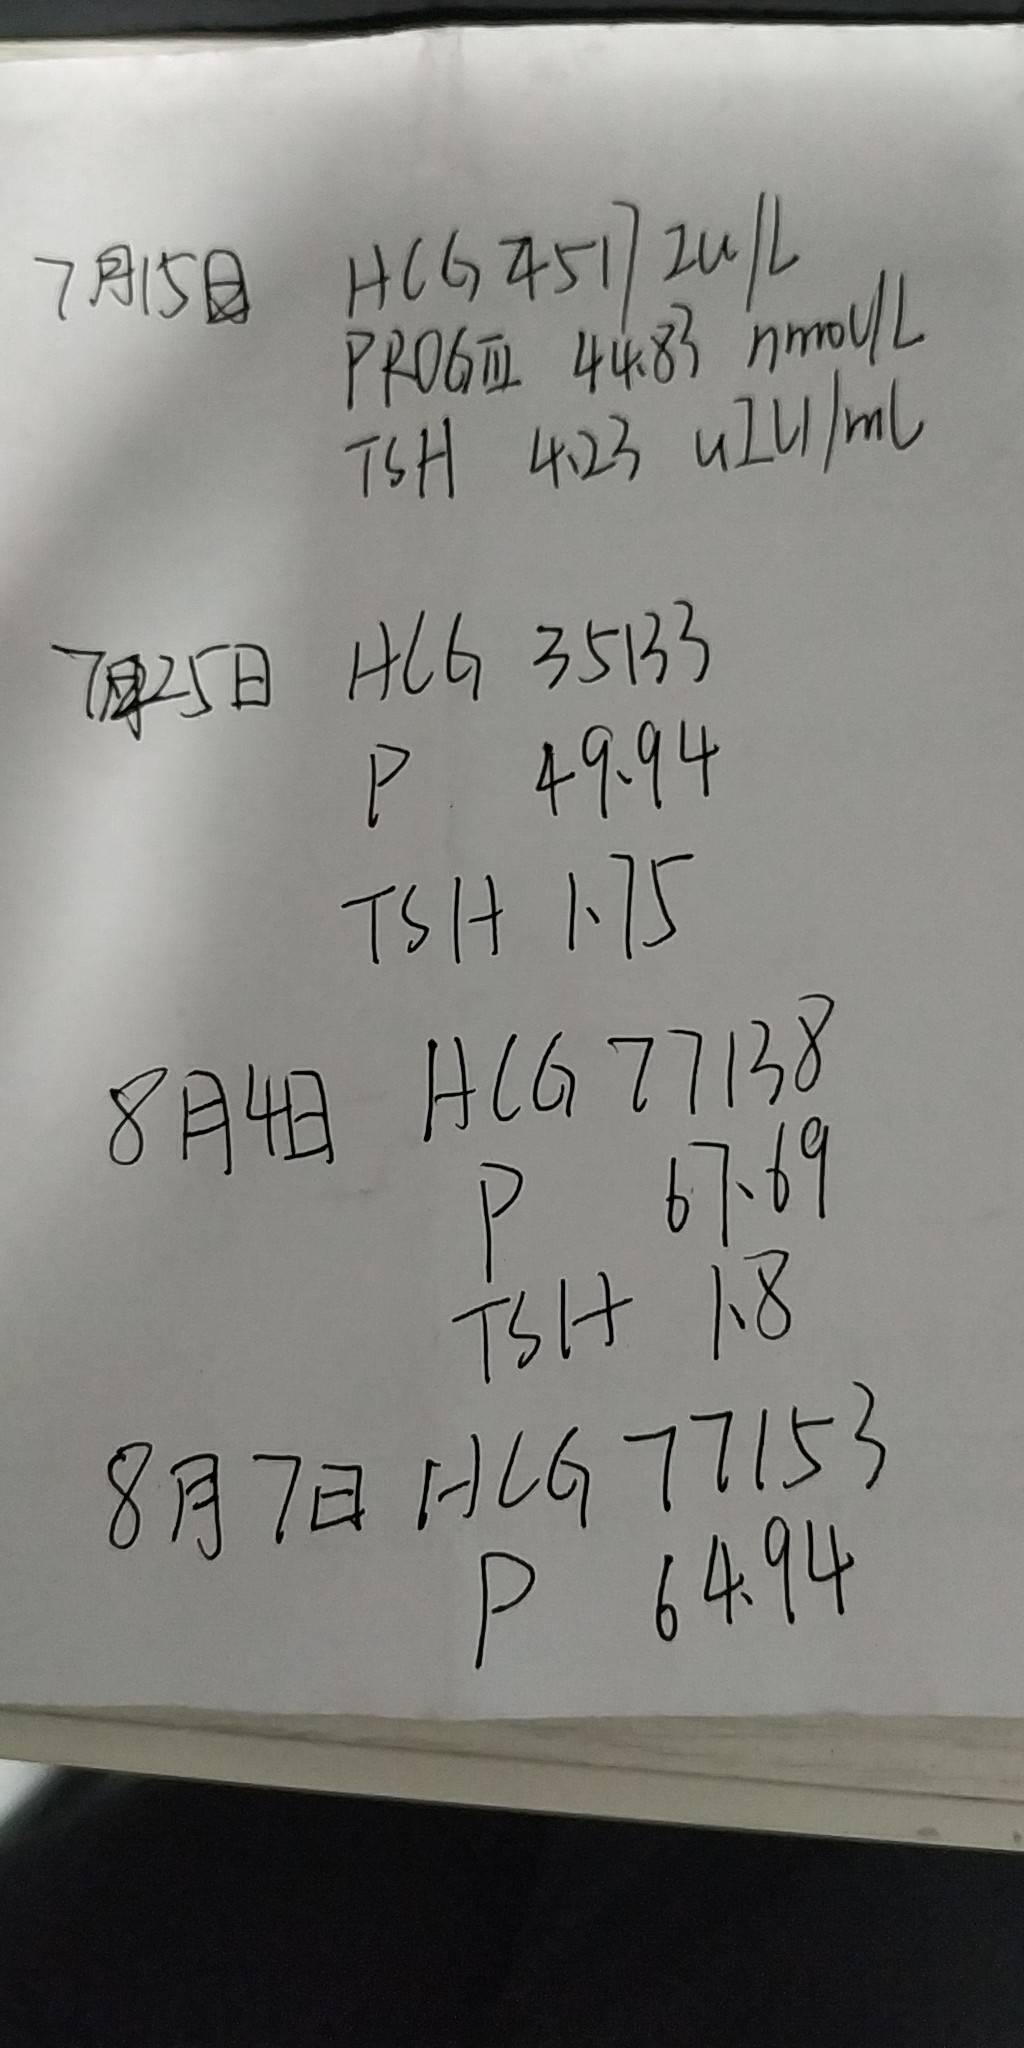 7月15日 HCG 4517 IU/L
PROGIII 44.83 nmol/L
TSH 4.23 uIU/mL
7月25日 HCG 35133
P 49.94
TSH 1.75
8月4日 HCG 77138
P 67.69
TSH 1.8
8月7日 HCG 77153
P 64.94